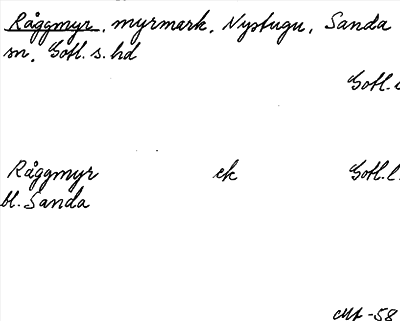 Råggmyr, myrmark, Nystugu, Sanda
sn, Gotl. s. hd
Gotl.
Råggmyr ek Gotl. l.
bl. Sanda
-58